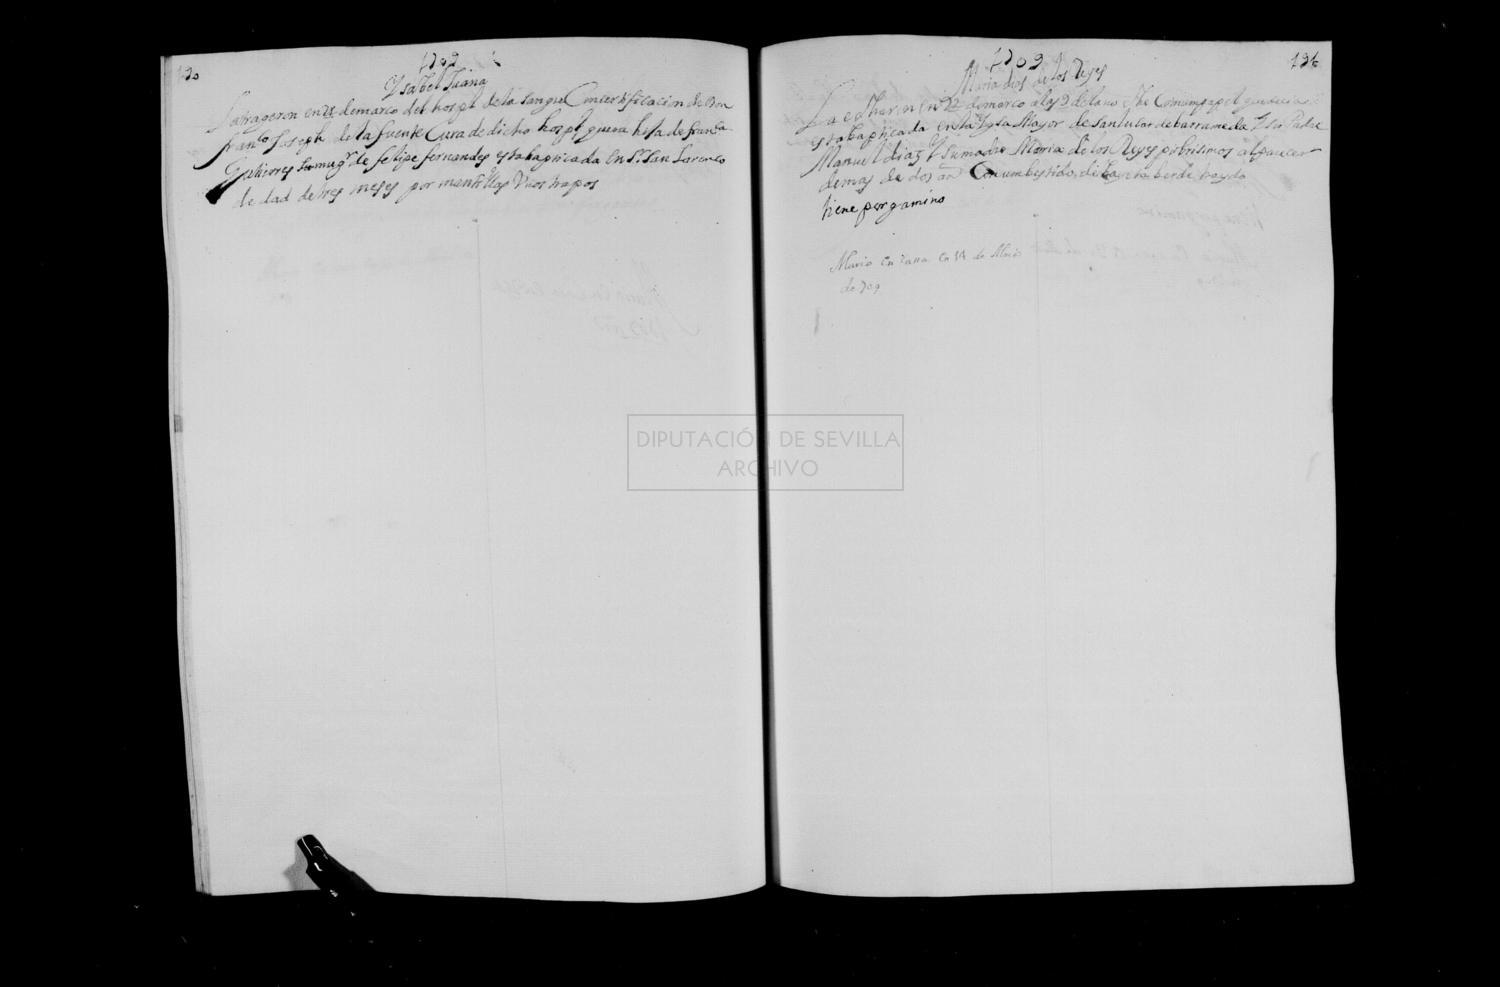 130
1709
Ysabel Juana
La trageron en 21 de marco del hospl de la sangre Con certificacion de Don
franco Joseph de la fuente Cura de dicho hospl que era hija de franca
Gutierres muger de felipe fernandes esta baptiçada En Sr San Lorenco
de dad de tres meses por mantillas Unos trapos
1709
136
Maria dias de los Reyes
La echaron en 22 de marco a las 9 de la no che Con un papel que decia
esta baptiçada en la Ygla Mayor de San lucar de barrameda Y su Padre
Manuel diaz Y Su madre Maria de los Reyes pobrisimos al parecer
de mas de dos an Con un bestido de berde traydo
tiene pergamino
Murio En Casa En de
de 709
DIPUTACIÓN DE SEVILLA
ARCHIVO